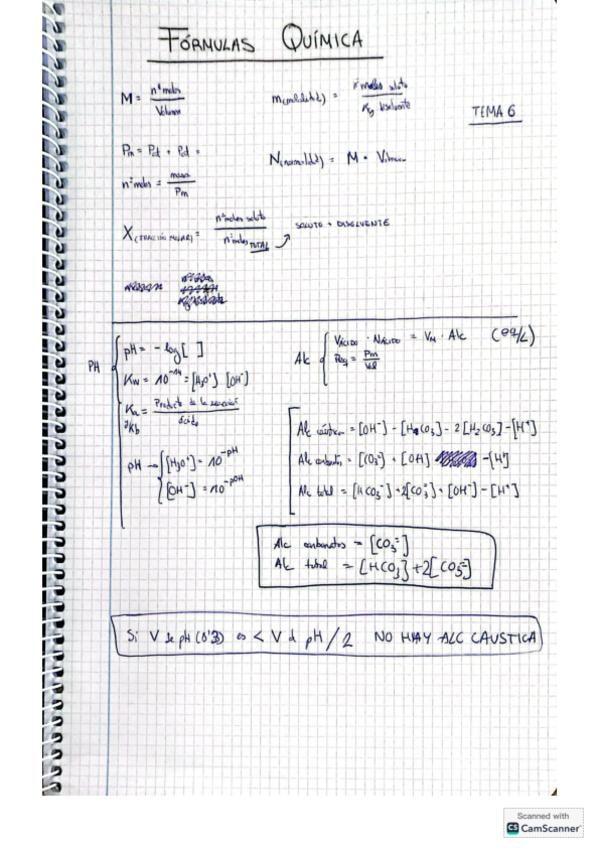 FÓRMULAS QUÍMICA
TEMA 6
M = nº moles / Volumen
m(molalidad) = nº moles soluto / Kg disolvente
Pm = Pat + Pat =
N(normalidad) = M ·
nº moles = masa / Pm
X (FRACCIÓN MOLAR) = nº moles soluto / nº moles TOTAL → SOLUTO + DISOLVENTE
PH
pH = - log [ ]
Kw = 10⁻¹⁴ = [H₃O⁺] [OH⁻]
Ka = Producto de la / ácido
Kb
pH → [H₃O⁺] = 10^-pH
[OH⁻] = 10^-pOH
Alc
VÁCIDO · NÁCIDO = VM · Alc (eq/L)
Peq = Pm / Val
Alc cáustica = [OH⁻] - [HCO₃] - 2[H₂CO₃] - [H⁺]
Alc carbonatos = [CO₃⁼] + [OH] - [H⁺]
Alc total = [HCO₃⁻] + 2[CO₃⁼] + [OH⁻] - [H⁺]
Alc carbonatos = [CO₃⁼]
Alc total = [HCO₃] + 2[CO₃⁼]
Si V de pH (8'3) es < V d pH / 2 NO HAY ALC CAUSTICA
Scanned with
CS CamScanner